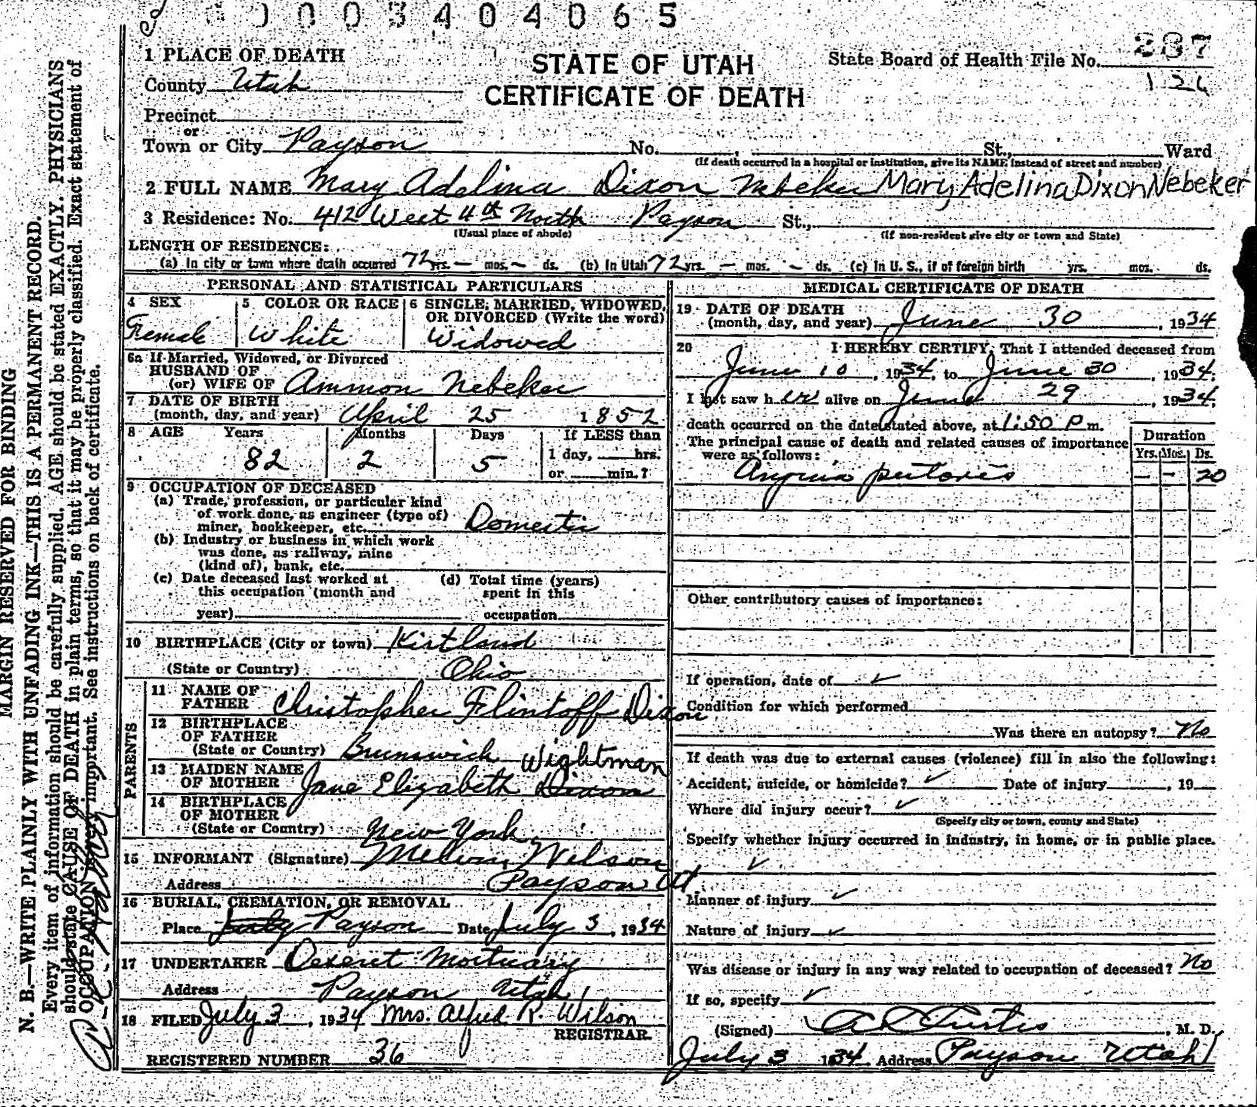 0003404065
1 PLACE OF DEATH
STATE OF UTAH
CERTIFICATE OF DEATH
State Board of Health File No. 287
126
County Utah
Precinct
or
Town or City Payson No. , St., Ward
(If death occurred in a hospital or institution, give its NAME instead of street and number)
2 FULL NAME Mary Adelina Dixon Nebeker Mary Adelina Dixon Nebeker
3 Residence: No. 412 West 4th North Payson St.,
(Usual place of abode) (If non-resident give city or town and State)
LENGTH OF RESIDENCE:
(a) In city or town where death occurred 72 yrs. - mos. - ds. (b) In Utah 72 yrs. - mos. - ds. (c) In U. S., if of foreign birth yrs. mos. ds.
PERSONAL AND STATISTICAL PARTICULARS
4 SEX 5 COLOR OR RACE 6 SINGLE, MARRIED, WIDOWED,
OR DIVORCED (Write the word)
Female White Widowed
6a If Married, Widowed, or Divorced
HUSBAND OF
(or) WIFE OF Ammon Nebeker
7 DATE OF BIRTH
(month, day, and year) April 25 1852
8 AGE Years Months Days If LESS than
1 day, hrs.
82 2 5 or min.?
9 OCCUPATION OF DECEASED
(a) Trade, profession, or particular kind
of work done, as engineer (type of)
miner, bookkeeper, etc. Domestic
(b) Industry or business in which work
was done, as railway, mine
(kind of), bank, etc.
(c) Date deceased last worked at (d) Total time (years)
this occupation (month and spent in this
year) occupation
10 BIRTHPLACE (City or town) Kirtland
(State or Country) Ohio
PARENTS
11 NAME OF
FATHER Christopher Flintoff Dixon
12 BIRTHPLACE
OF FATHER
(State or Country) Brunswick
Wightman
13 MAIDEN NAME
OF MOTHER Jane Elizabeth Dixon
14 BIRTHPLACE
OF MOTHER
(State or Country) New York
15 INFORMANT (Signature) Melvin Wilson
Address Payson Ut
16 BURIAL, CREMATION, OR REMOVAL
Place July Payson Date July 3, 1934
17 UNDERTAKER Deseret Mortuary
Address Payson Utah
18 FILED July 3, 1934 Mrs. Alfred R. Wilson
REGISTRAR
REGISTERED NUMBER 36
MEDICAL CERTIFICATE OF DEATH
19 DATE OF DEATH
(month, day, and year) June 30, 1934
20 I HEREBY CERTIFY, That I attended deceased from
June 10, 1934, to June 30 1934,
I last saw her alive on June 29 1934,
death occurred on the date stated above, at 1:50 P m.
The principal cause of death and related causes of importance
were as follows:
Duration
Yrs. Mos. Ds.
Angina pectoris - - 20
Other contributory causes of importance:
If operation, date of ✓
Condition for which performed
Was there an autopsy? No
If death was due to external causes (violence) fill in also the following:
Accident, suicide, or homicide? ✓ Date of injury , 19
Where did injury occur? ✓
(Specify city or town, county and State)
Specify whether injury occurred in industry, in home, or in public place.
✓
Manner of injury ✓
Nature of injury ✓
Was disease or injury in any way related to occupation of deceased? No
If so, specify ✓
(Signed) A L Curtis, M. D.
July 3 1934 Address Payson Utah
MARGIN RESERVED FOR BINDING
N. B.—WRITE PLAINLY WITH UNFADING INK—THIS IS A PERMANENT RECORD.
Every item of information should be carefully supplied. AGE should be stated EXACTLY. PHYSICIANS
should state CAUSE OF DEATH in plain terms, so that it may be properly classified. Exact statement of
OCCUPATION is very important. See instructions on back of certificate.